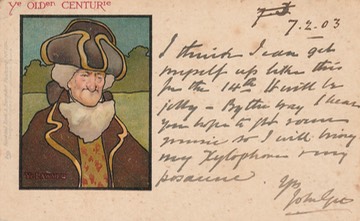 Yᵉ OLDᵉⁿ CENTURIᵉ
7.2.03
I think I can get
myself up like this
for the 14th It will be
jolly - By the way I hear
you hope to get some
music so I will bring
my Xylophone & my
posaune
Yrs
John